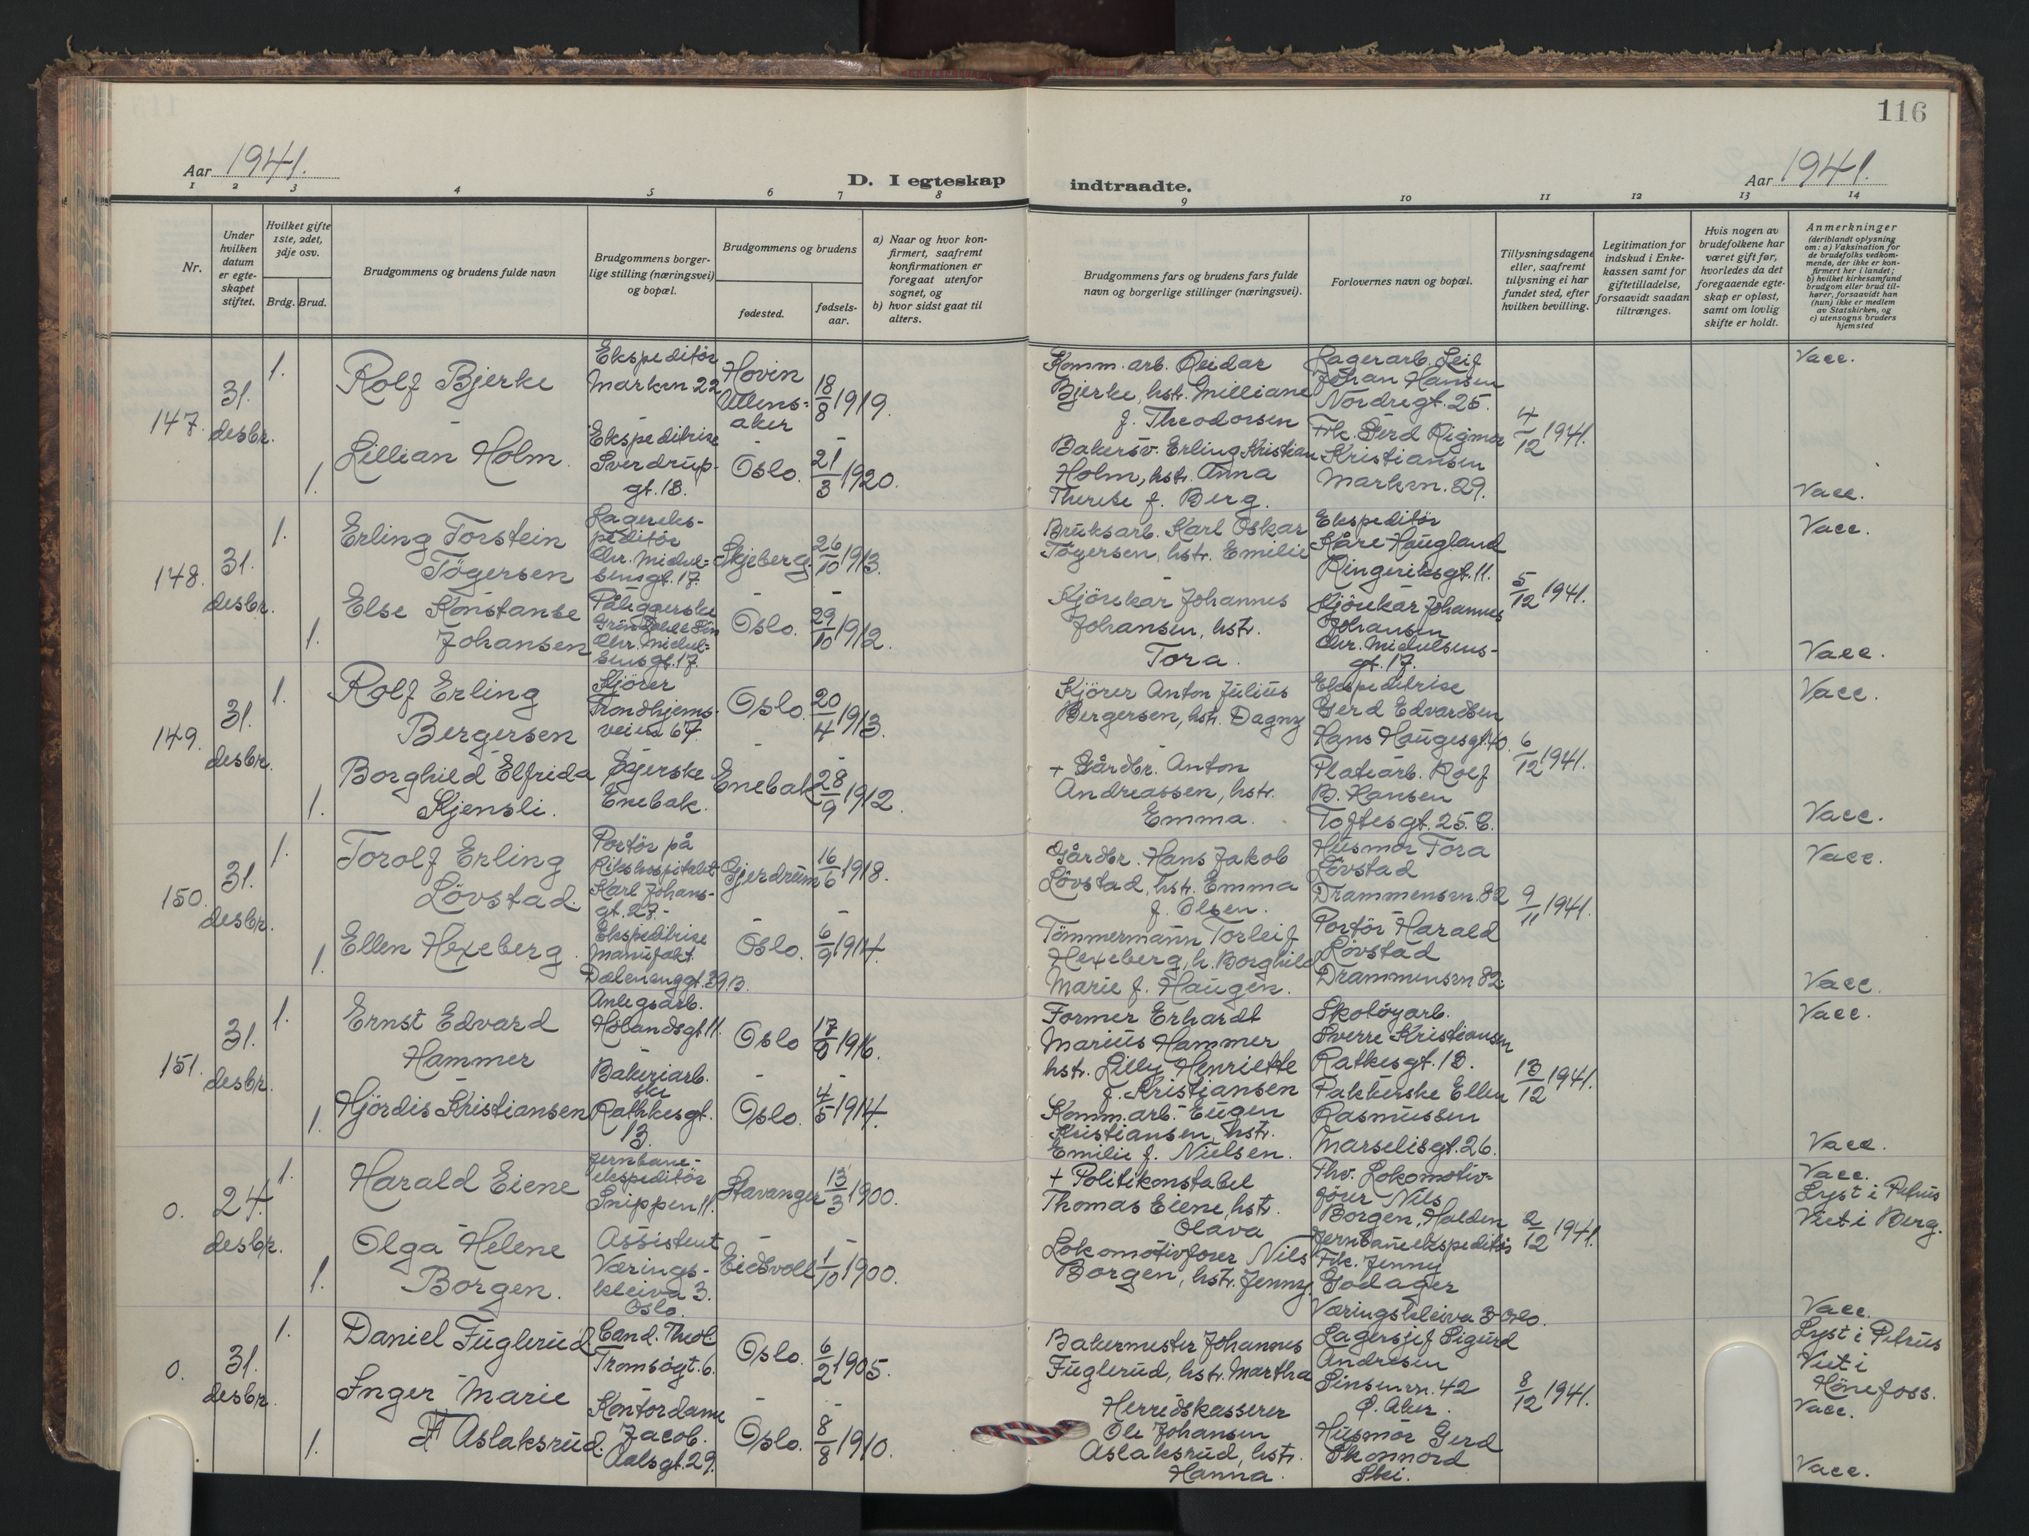 116
Aar 1941.
D. I egteskap indtraadte.
Aar 1941.
1 2 3 4 5 6 7 8 9 10 11 12 13 14
Nr.
Under hvilken datum er egte-skapet stiftet.
Hvilket gifte 1ste, 2det, 3dje osv.
Brdg. Brud.
Brudgommens og brudens fulde navn
Brudgommens borger-lige stilling (næringsvei) og bopæl.
Brudgommens og brudens
fødested.
fødsels-aar.
a) Naar og hvor kon-firmert, saafremt konfirmationen er foregaat utenfor sognet, og
b) hvor sidst gaat til alters.
Brudgommens fars og brudens fars fulde navn og borgerlige stillinger (næringsvei).
Forlovernes navn og bopæl.
Tillysningsdagene eller, saafremt tillysning ei har fundet sted, efter hvilken bevilling.
Legitimation for indskud i Enke-kassen samt for giftetilladelse, forsaavidt saadan tiltrænges.
Hvis nogen av brudefolkene har været gift før, hvorledes da det foregaaende egte-skap er opløst, samt om lovlig skifte er holdt.
Anmerkninger
(deriblandt oplysning om: a) Vaksination for de brudefolks vedkom-mende, der ikke er kon-firmert her i landet; b) hvilket kirkesamfund brudgom eller brud til-hører, forsaavidt han (hun) ikke er medlem av Statskirken, og c) utensogns bruders hjemsted
147.
31. desbr.
1.
Rolf Bjerke
Ekspeditør
Marken 22
Hovin
Ullens-
aker
18/8 1919.
Komm. arb. Reidar
Bjerke, hstr. Milliane
f. Theodorsen
Lagerarb. Leif
Johan Hansen
Nordregt. 25.
4/12 1941.
Vacc.
1.
Lillian Holm.
Ekspeditrise
Sverdrup-
gt. 13.
Oslo.
21/3 1920.
Bakersv. Erling Kristian
Holm, hstr. Anna
Therese f. Berg.
Frk. Gerd Rigmor
Kristiansen
Markvn. 29.
Vacc.
148.
31. desbr.
1.
Erling Torstein
Tøgersen
Lagereks-
peditør
Chr. Michel-
sensgt. 17.
Skjeberg
26/10 1913.
Bruksarb. Karl Oskar
Tøgersen, hstr. Emilie
Ekspeditør
Kåre Haugland
Ringeriksgt. 11.
5/12 1941.
Vacc.
1.
Else Konstanse
Johansen
Påleggerske
Chr. Michel-
sensgt. 17.
Oslo.
29/10 1912.
Kjørekar Johannes
Johansen, hstr.
Tora.
Kjørekar Johannes
Johansen
Chr. Michelsens-
gt. 17.
Vacc.
149.
31. desbr.
1.
Rolf Erling
Bergersen
Kjører
Trondhjems-
veien 67
Oslo.
20/4 1913.
Kjører Anton Julius
Bergersen, hstr. Dagny
Ekspeditrise
Gerd Edvardsen
Hans Haugesgt. 40.
6/12 1941.
Vacc.
1.
Borghild Elfrida
Kjensli.
Syerske
Enebak.
Enebak
28/9 1912.
+ Gårdbr. Anton
Andreassen, hstr.
Emma.
Platearb. Rolf
B. Hansen
Toftesgt. 25.C.
Vacc.
150.
31. desbr.
1.
Torolf Erling
Løvstad.
Portør på
Rikshospitalet
Karl Johans-
gt. 27.
Gjerdrum
16/6 1918.
Gårdbr. Hans Jakob
Løvstad, hstr. Emma
f. Olsen.
Husmor Tora
Løvstad
Drammensvn. 82
9/11 1941.
Vacc.
1.
Ellen Hexeberg.
Ekspeditrise
Manufakt.
Dælenenggt. 39 B.
Oslo.
6/9 1914.
Tømmermann Torleif
Hexeberg, h. Borghild
Marie f. Haugen.
Portør Harald
Løvstad
Drammensvn 82.
Vacc.
151.
31. desbr.
1.
Ernst Edvard
Hammer
Anlegsarb.
Hølandsgt. 11.
Oslo
17/8 1916.
Former Erhardt
Marius Hammer
hstr. Lilly Henriette
f. Kristiansen
Skotøyarb.
Sverre Kristiansen
Ratkesgt. 13.
13/12 1941.
Vacc.
1.
Hjørdis Kristiansen
Bakeriarb.
ske
Rathkesgt.
13.
Oslo.
4/5 1914.
Komm. arb. Eugen
Kristiansen, hstr.
Emilie f. Nielsen.
Pakkerske Ellen
Rasmussen
Marselisgt. 26.
Vacc.
0.
24. desbr.
1.
Harald Eiene
Jernbane-
ekspeditør
Snippen 11.
Stavanger
13/3 1900.
+ Politikonstabel
Thomas Eiene, hstr.
Olava
Thv. Lokomotiv-
fører Nils
Borgen, Halden
2/12 1941.
Vacc.
Lyst i Petrus
Viet i Berg.
1.
Olga Helene
Borgen.
Assistent
Værings-
kleiva 3.
Oslo.
Eidsvoll
1/10 1900.
Lokomotivfører Nils
Borgen, hstr. Jenny.
Jernbaneekspeditør
Frk. Jenny
Godager
Væringskleiva 3 Oslo.
Vacc.
0.
31. desbr.
1.
Daniel Fuglerud
Cand. Theol
Tromsøgt. 6.
Oslo.
6/2 1905.
Bakermester Johannes
Fuglerud, hstr. Martha
Lagersjef Sigurd
Andresen
Sinsenvn. 42
Ø. Aker.
8/12 1941.
Lyst i Petrus
Viet i
Hønefoss.
Vacc.
1.
Inger Marie
Aslaksrud.
Kontordame
Jacob
Aalsgt. 29.
Oslo.
8/8 1910.
Herredskasserer
Ole Johansen
Aslaksrud, hstr.
Hanna.
Husmor Gerd
Skonnord
Ski.
Vacc.